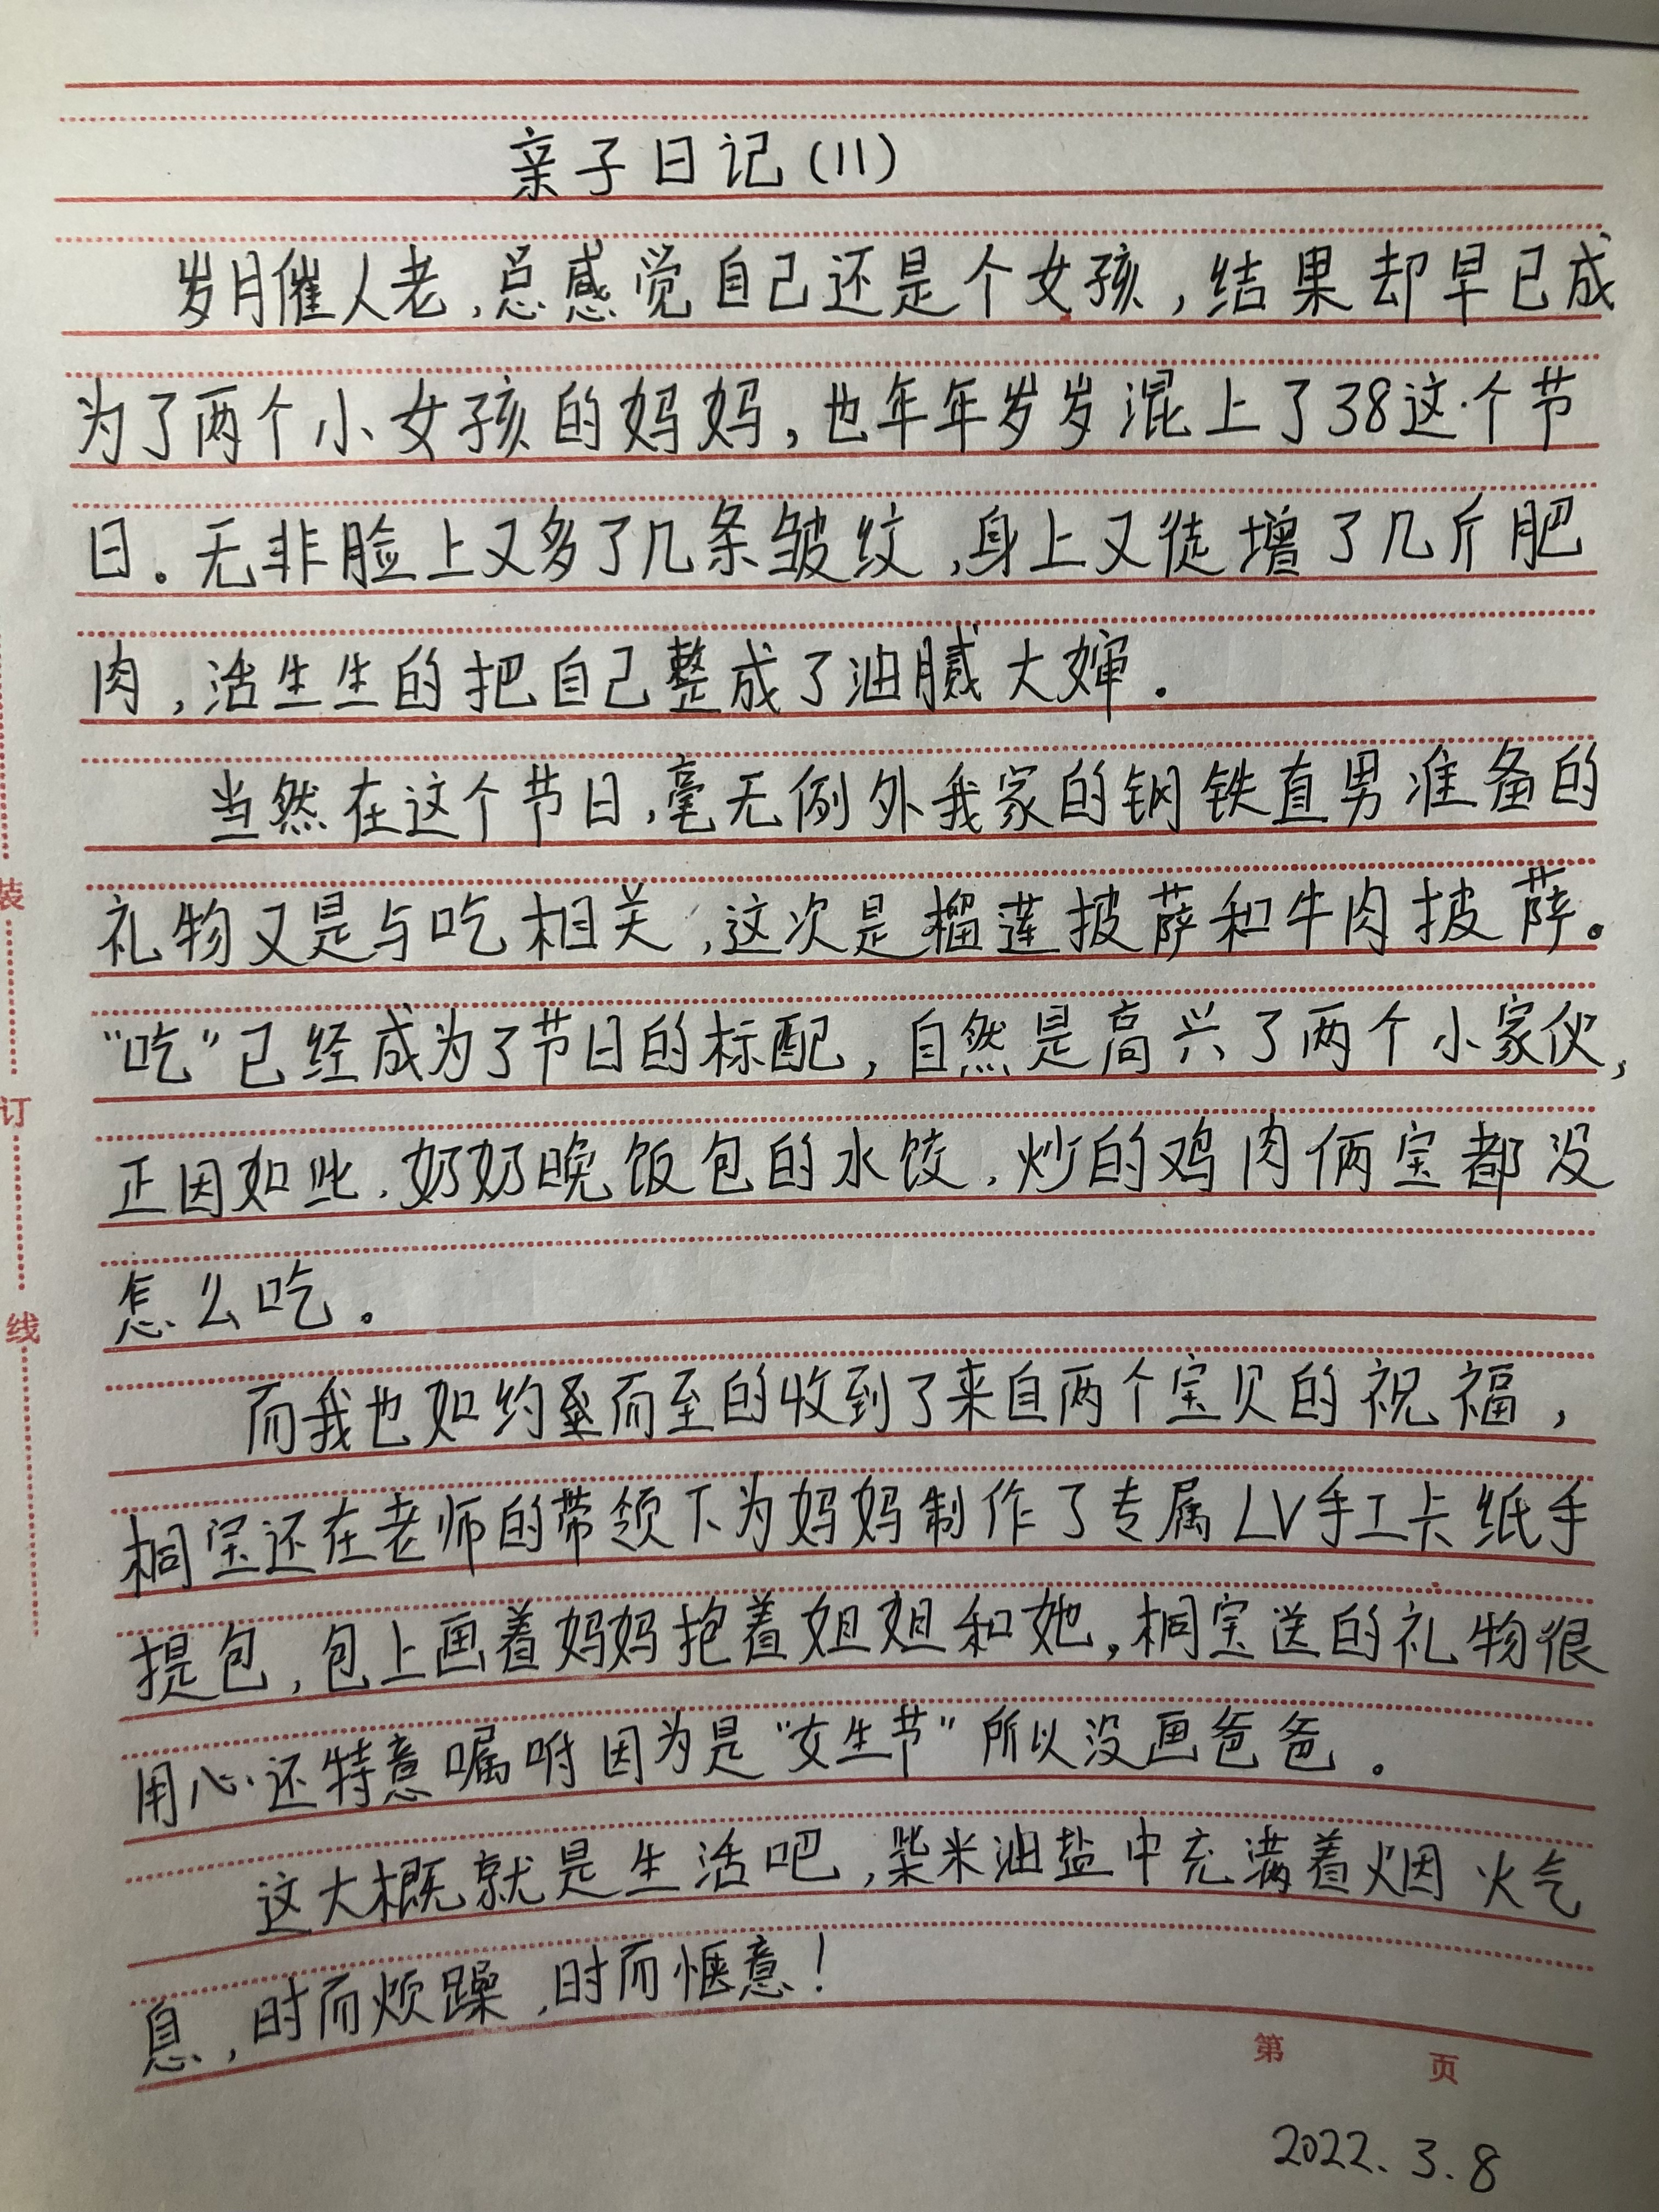 亲子日记(11)
岁月催人老,总感觉自己还是个女孩,结果却早已成
为了两个小女孩的妈妈,也年年岁岁混上了38这个节
日。无非脸上又多了几条皱纹,身上又徒增了几斤肥
肉,活生生的把自己整成了油腻大婶.
当然在这个节日,毫无例外我家的钢铁直男准备的
礼物又是与吃相关,这次是榴莲披萨和牛肉披萨。
“吃”已经成为了节日的标配,自然是高兴了两个小家伙,
正因如此,奶奶晚饭包的水饺,炒的鸡肉俩宝都没
怎么吃。
而我也如约而至的收到了来自两个宝贝的祝福,
桐宝还在老师的带领下为妈妈制作了专属LV手工卡纸手
提包,包上画着妈妈抱着姐姐和她,桐宝送的礼物很
用心还特意嘱咐因为是“女生节”所以没画爸爸.
这大概就是生活吧,柴米油盐中充满着烟火气
息,时而烦躁,时而惬意!
装
订
线
第 页
2022.3.8